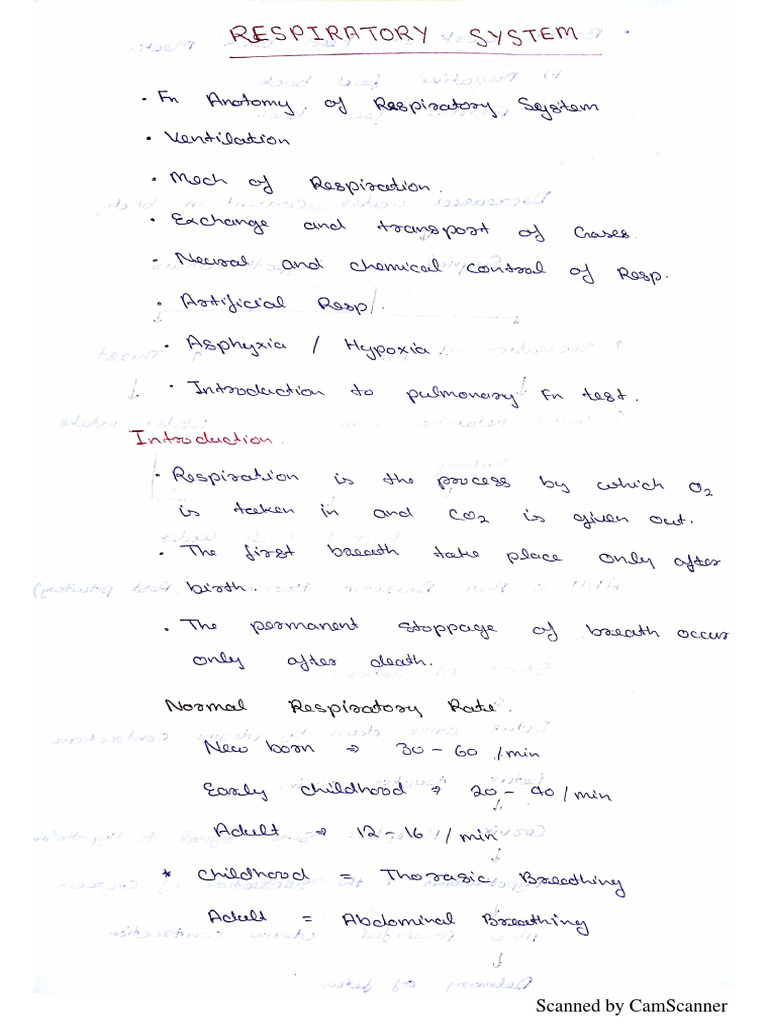 RESPIRATORY SYSTEM
• Fn Anatomy of Respiratory System
• Ventilation
• Mech of Respiration.
• Exchange and transport of Gases.
• Neural and chemical control of Resp.
• Artificial Resp.
• Asphyxia / Hypoxia.
• Introduction to pulmonary Fn test.
Introduction.
• Respiration is the process by which O2
is taken in and CO2 is given out.
• The first breath take place only after
birth.
• The permanent stoppage of breath occur
only after death.
Normal Respiratory Rate.
New born ⇒ 30 - 60 /min
Early childhood ⇒ 20 - 40 /min
Adult ⇒ 12 - 16 / min
* Childhood = Thorasic Breathing
Adult = Abdominal Breathing
Scanned by CamScanner